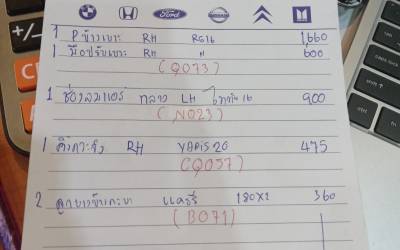 Ford
1 P ข้างเบาะ RH RG16 1,660
1 มือปรับเบาะ RH " 600
(Q073)
1 ช่องลมแอร์ กลาง LH 16 900
(N023)
1 RH YARIS 20 475
(Q057)
2 ลูกยาง แคมรี่ 180x2 360
(B071)